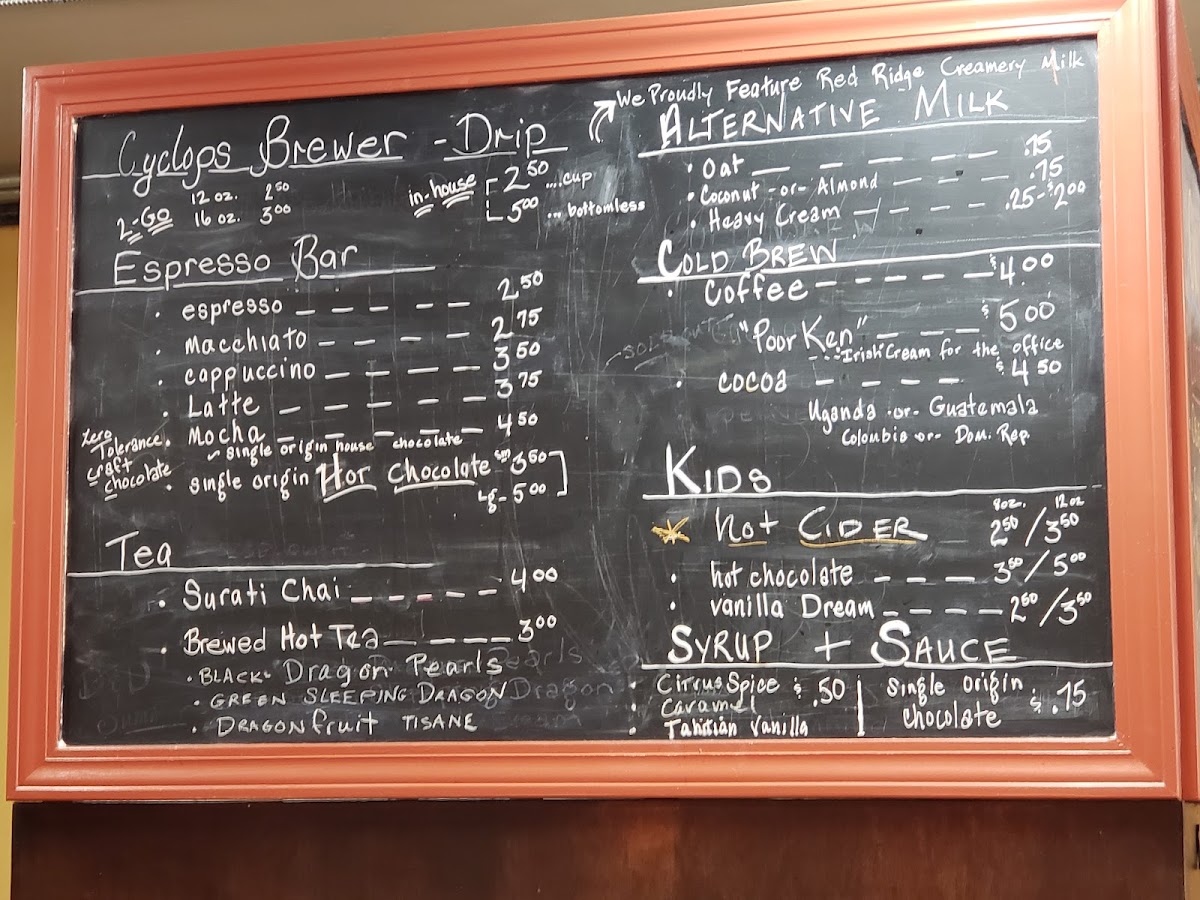 Cyclops Brewer - Drip
2-Go 12 oz. 2.50
16 oz. 3.00
in-house 2.50 ....cup
5.00 ... bottomless
Espresso Bar
• espresso — — — — — 2.50
• macchiato — — — — — 2.75
• cappuccino — — — — — 3.50
• Latte — — — — — 3.75
• Mocha — — — — — 4.50
~ single origin house chocolate
Zero
Tolerance
craft
chocolate
• single origin Hot Chocolate sm - 3.50
Lg - 5.00
Tea
• Surati Chai — — — — — 4.00
• Brewed Hot Tea — — — — 3.00
• BLACK - Dragon Pearls
• GREEN SLEEPING DRAGON
• DRAGONfruit TISANE
We Proudly Feature Red Ridge Creamery Milk
ALTERNATIVE MILK
• Oat — — — — — .75
• Coconut -or- Almond — — — — .75
• Heavy Cream — — — — — .25-$2.00
COLD BREW
• Coffee — — — — — $4.00
"Poor Ken" — — — — $5.00
...Irish Cream for the office
• cocoa — — — — $4.50
Uganda -or- Guatemala
Colombia or- Dom. Rep.
KIDS
8oz. 12oz
hot CIDER 2.50/3.50
• hot chocolate — — — 3.50/5.00
• vanilla Dream — — — — 2.50/3.50
SYRUP + SAUCE
• Citrus Spice $.50
• Caramel
• Tahitian Vanilla
Single Origin
chocolate $.75